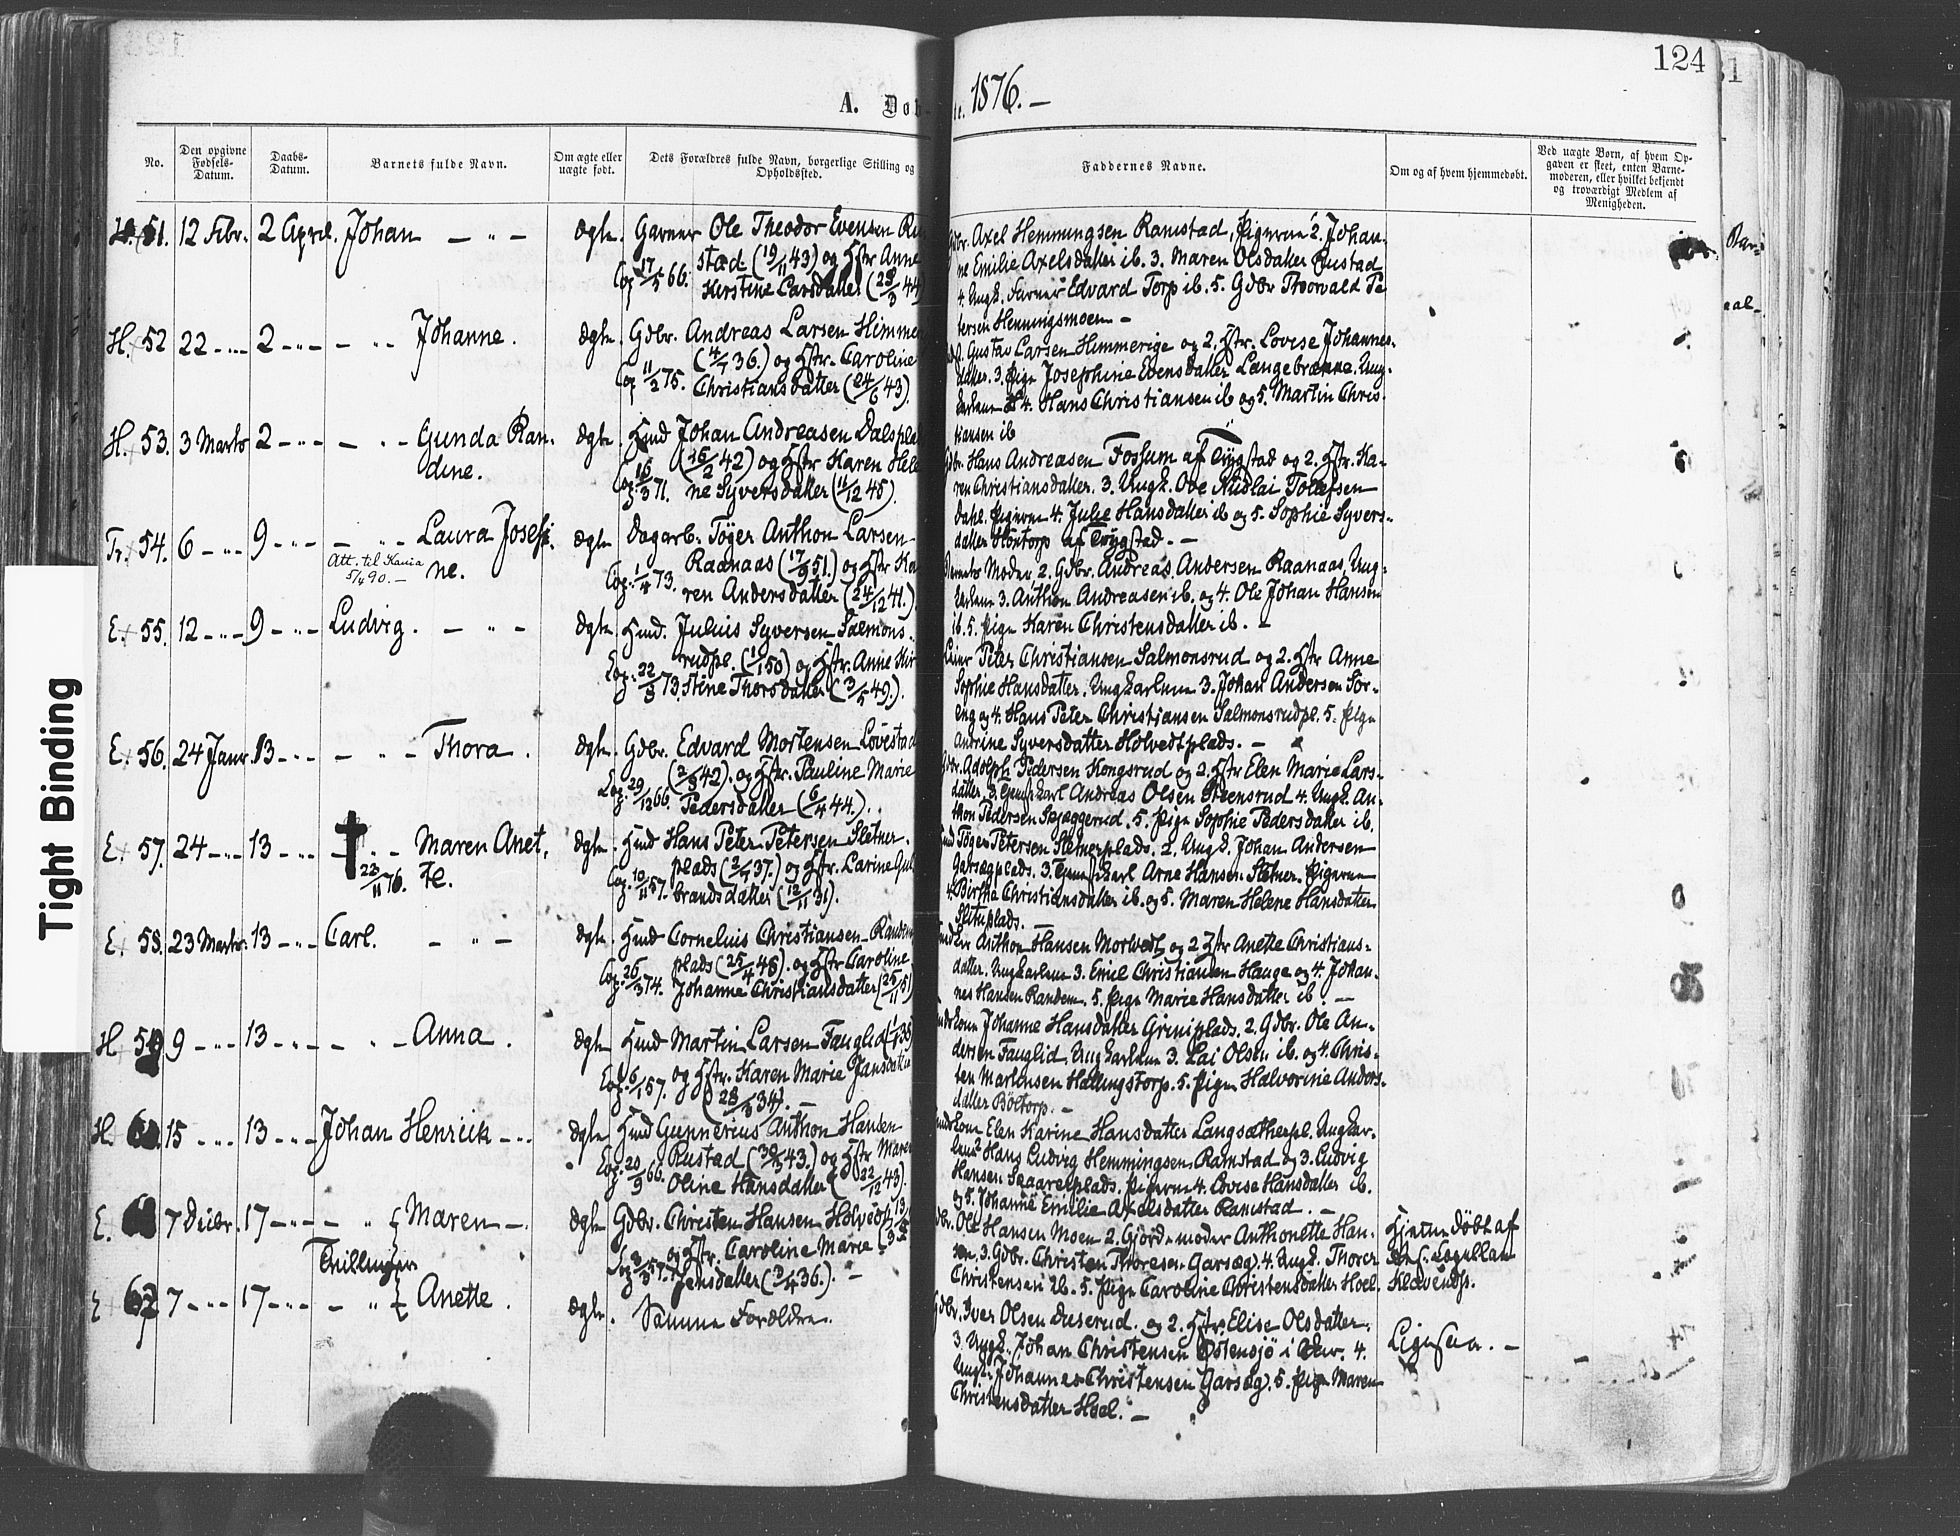 124
A. Døb-
te. 1876. —
No.
Den opgivne Fødsels-Datum.
Daabs-Datum.
Barnets fulde Navn.
Om ægte eller uægte født.
Dets Forældres fulde Navn, borgerlige Stilling og Opholdssted.
Faddernes Navne.
Om og af hvem hjemmedøbt.
Ved uægte Børn, af hvem Opgaven er skeet, enten Barnemoderen, eller hvilket bekjendt og troværdigt Medlem af Menigheden.
51. 12 Febr. 2 April. Johan — " — ægte. Garver Ole Theodor Evensen
stad (19/11 43) og Hstr Anne
Cop 17/5 66. Kirstine Larsdatter (28/3 44)
Gdbr. Axel Hemmingsen Ramstad, Pigerne 2. Johan-
ne Emilie Axelsdatter ib. 3. Maren Olsdatter Rustad
4. Ungk. Farver Edvard Torp ib. 5. Gdbr Thorvald Pe
tersen Hemmingsmoen —
H. 52 22 - " - 2 - " - — " - Johanne. ægte Gdbr. Andreas Larsen Himme
(4/7 36.) og Hstr. Caroline
Cop 11/2 75. Christiansdatter (24/6 43).
Gustav Larsen Himmerige og 2. Hstr. Lovise Johannes-
datter. 3. Pige Josephine Evensdatter Langebrænne. Ung-
karlene 4. Hans Christiansen ib og 5. Martin Chris-
tiansen ib
H. 53. 3 Marts 2 - " - — " - Gunda Ran-
dine.
ægte Hmd Johan Andreasen Dalspla
(16/2 42) og Hstr Karen Hele
Cop: 16/3 71. ne Syversdatter (11/12 48).
Gdbr. Hans Andreasen Fossum af Trygstad og 2. Hstr. Ka-
ren Christiansdatter. 3. Ungk. Ove Nicolai Tollefsen
Dahl. Pigerne 4. Julie Hansdatter ib og 5. Sophie Syvers-
datter Hontorp af Trygstad. —
Tr. 54. 6 - " - 9 - " - — " - Laura Josefi-
ne.
Att. til Kania
5/4 90. —
ægte Dagarb. Töger Anthon Larsen
Raanaas (17/9 51.) og Hstr Ka
Cop: 1/4 73. ren Andersdatter (24/12 41.)
Barnets Moder, 2. Gdbr. Andreas Andersen Raanaas, Ung-
karlene 3. Anthon Andreasen ib. og 4. Ole Johan Hansen
ib. 5. Pige Karen Christensdatter ib. —
E. 55. 12 - " - 9 - " - Ludvig. — " — ægte Hmd. Julius Syversen Salmons-
rudpl. (1/1 50) og Hstr. Anne Kir
Cop: 22/3 73. stine Thorsdatter (3/5 49.).
Peter Christiansen Salmonsrud og 2. Hstr Anne
Sophie Hansdatter. Ungkarlene 3. Johan Andersen Sör-
eng og 4. Hans Peter Christiansen Salmonsrudpl. 5. Pige
Andrine Syversdatter Holvedtplads. —
E. 56. 24 Janr. 13 - " - — " - Thora. ægte Gdbr. Edvard Mortensen Lovestad
(2/8 42). og Hstr. Pauline Marie
Cop: 29/12 66. Pedersdatter (6/4 44.).
Gdbr. Adolph Pedersen Kongsrud og 2. Hstr Elen Marie Lars-
datter. 3. Ungkarl Andreas Olsen Steensrud 4. Ungk. An-
thon Pedersen Skjæggerud. 5. Pige Sophie Pedersdatter ib.
E. 57. 24 - " - 13 - " - — " - Maren Anet-
te.
† 23/11 76.
ægte. Hmd Hans Peter Petersen Sletner-
plads (2/7 37.) og Hstr. Larine Gul
Cop: 10/11 57. brandsdatter (12/11 31).
Töger Petersen Sletnerplads. 2. Ungk. Johan Andersen
Garsegplads. 3. Ungkarl Arne Hansen Sletner. Pigerne
4. Birthe Christiansdatter ib. og 5. Maren Helene Hansdatter
Slituplads. —
E. 58. 23 Marts. 13 - " - Carl. — " — ægte. Hmd Cornelius Christiansen Randem
plads (25/4 48). og Hstr Caroline
Cop: 26/3 74. Johanne Christiansdatter (25/11 51)
Anthon Hansen Morvedt og 2 Hstr Anette Christians-
datter. Ungkarlene 3. Emil Christiansen Hauge og 4. Johan-
nes Hansen Randem. 5. Pige Marie Hansdatter ib. —
H. 59 9 - " - 13 - " - — " - Anna. ægte Hmd Martin Larsen Fauglid
og Hstr. Karen Marie Jansdatter
Cop: 6/1 57. (28/3 34). —
Johanne Hansdatter Griniplads. 2. Gdbr. Ole An-
dersen Fauglid, Ungkarlene 3. Lai Olsen ib. og 4. Chris-
ten Martensen Hallingstorp. 5. Pige Halvorine Anders-
datter Böltorp. —
H. 60. 15 - " - 13 - " - Johan Henrik - " - ægte Hmd Gunnerius Anthon Hansen
Rustad (30/3 43.) og Hstr Maren
Cop: 20/9 66. Oline Hansdatter (22/12 43).
Elen Karine Hansdatter Langsætherpl. Ungkar-
lene 2 Hans Ludvig Hemmingsen Ramstad og 3. Ludvig
Hansen Skaarerplads. Pigerne 4. Lovise Hansdatter ib.
og 5. Johanne Emilie Axelsdatter Ramstad. —
E. 61 7 Decbr. 17 - " - — " { Maren —. ægte Gdbr. Christen Hansen Holvedt
Trillinger
og Hstr. Caroline Marie
Cop 3/3 57. Jensdatter (3/4 36.). —
Ole Hansen Moen 2. Gjordemoder Anthonette Han-
sen. 3. Gdbr. Christen Thoresen Garsæg. 4. Ungk. Thorer
Christensen ib. 5. Pige Caroline Christensdatter Hoel.
Hjemmedöbt af
Klavends.
E 62 7 - " - 17 - " - — " { Anette. ægte. Samme Forældre.
Gdbr. Iver Olsen Duserud. og 2. Hstr. Elise Olsdatter.
3. Ungk. Johan Christensen Östensjö i 4.
Ungk. Johannes Christensen Garsæg. 5. Pige Maren
Christensdatter Hoel. —
Ligesaa. —
Tight Binding